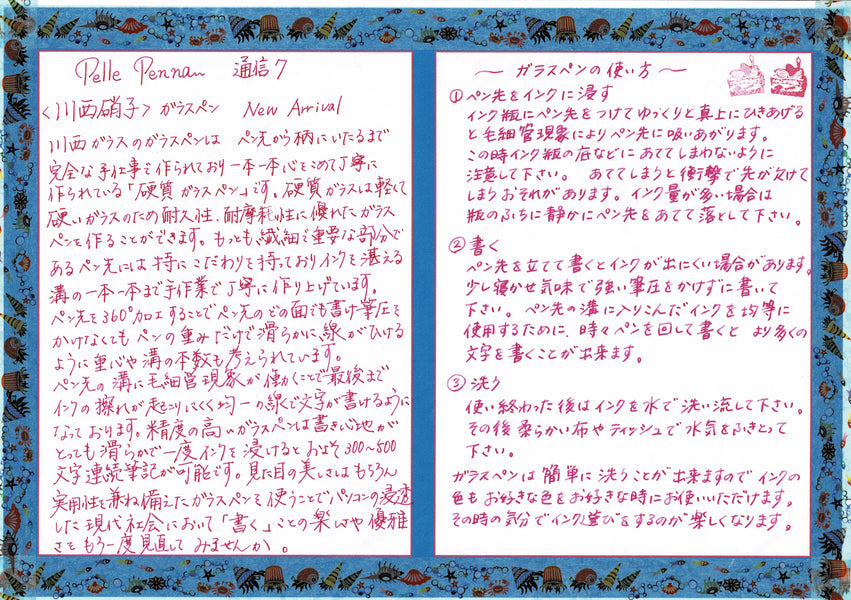 Pelle Pennan 通信7
〈川西硝子〉ガラスペン New Arrival
川西ガラスのガラスペンは ペン先から柄にいたるまで
完全な手仕事で作られており一本一本心をこめて丁寧に
作られている「硬質ガラスペン」です。硬質ガラスは軽くて
硬いガラスのため耐久性、耐摩耗性に優れたガラス
ペンを作ることができます。もっとも繊細で重要な部分で
あるペン先には特にこだわりを持っておりインクを湛える
溝の一本一本まで手作業で丁寧に作り上げています。
ペン先を360°加工することでペン先のどの面でも書け筆圧を
かけなくともペンの重みだけで滑らかに線がひける
ように重心や溝の本数も考えられています。
ペン先の溝に毛細管現象が働くことで最後まで
インクの擦れが起こりにくく均一の線で文字が書けるように
なっております。精度の高いガラスペンは書き心地が
とっても滑らかで一度インクを浸けるとおよそ300~500
文字連続筆記が可能です。見た目の美しさはもちろん
実用性を兼ね備えたガラスペンを使うことでパソコンの浸透
した現代社会において「書く」ことの楽しさや優雅
さをもう一度見直してみませんか。
~ ガラスペンの使い方 ~
①ペン先をインクに浸す
インク瓶にペン先をつけてゆっくりと真上にひきあげる
と毛細管現象によりペン先に吸いあがります。
この時インク瓶の底などにあててしまわないように
注意して下さい。 あててしまうと衝撃で先が欠けて
しまうおそれがあります。インク量が多い場合は
瓶のふちに静かにペン先をあてて落として下さい。
②書く
ペン先を立てて書くとインクが出にくい場合があります。
少し寝かせ気味で強い筆圧をかけずに書いて
下さい。 ペン先の溝に入りこんだインクを均等に
使用するために、時々ペンを回して書くと より多くの
文字を書くことが出来ます。
③洗う
使い終わった後はインクを水で洗い流して下さい。
その後柔らかい布やティッシュで水気をふきとって
下さい。
ガラスペンは簡単に洗うことが出来ますのでインクの
色もお好きな色をお好きな時にお使いいただけます。
その時の気分でインク遊びをするのが楽しくなります。